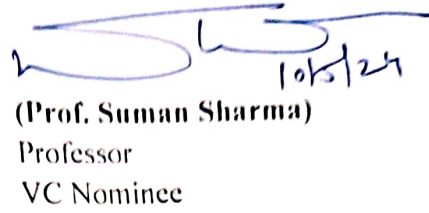 10/5/24
(Prof. Suman Sharma)
Professor
VC Nominee